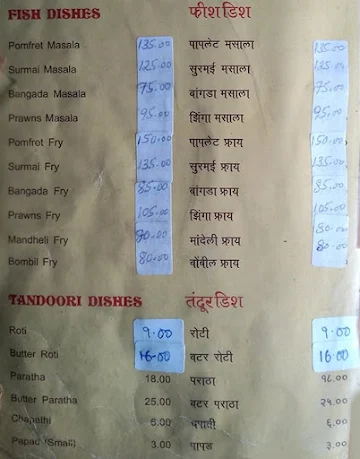 FISH DISHES फीश डिश
Pomfret Masala 135.00 पापलेट मसाला 135.00
Surmai Masala 125.00 सुरमई मसाला 125.00
Bangada Masala 75.00 बांगडा मसाला 75.00
Prawns Masala 95.00 झिंगा मसाला 95.00
Pomfret Fry 150.00 पापलेट फ्राय 150.00
Surmai Fry 135.00 सुरमई फ्राय 135.00
Bangada Fry 85.00 बांगडा फ्राय 85.00
Prawns Fry 105.00 झिंगा फ्राय 105.00
Mandheli Fry 80.00 मांदेली फ्राय 80.00
Bombil Fry 80.00 बोंबील फ्राय 80.00
TANDOORI DISHES तंदूर डिश
Roti 9.00 रोटी 9.00
Butter Roti 16.00 बटर रोटी 16.00
Paratha 18.00 पराठा १८.००
Butter Paratha 25.00 बटर पराठा २५.००
Chapathi 6.00 चपाती ६.००
Papad (Small) 3.00 पापड ३.००